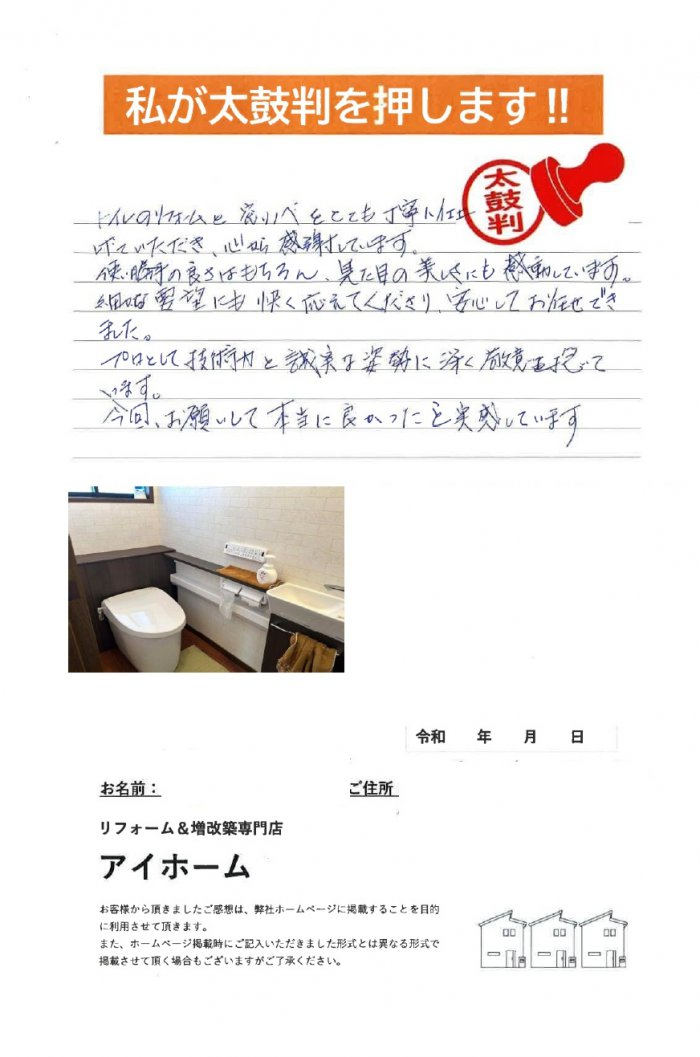 私が太鼓判を押します!!
太鼓判
トイレのリフォームと窓リノベをとても丁寧に仕上
げていただき、心から感謝しています。
使い勝手の良さはもちろん、見た目の美しさにも感動しています。
細かな要望にも快く応えてくださり、安心してお任せでき
ました。
プロとして技術力と誠実な姿勢に深く敬意を抱いて
います。
今回、お願いして本当に良かったと実感しています
令和 年 月 日
お名前: ご住所
リフォーム＆増改築専門店
アイホーム
お客様から頂きましたご感想は、弊社ホームページに掲載することを目的
に利用させて頂きます。
また、ホームページ掲載時にご記入いただきました形式とは異なる形式で
掲載させて頂く場合もございますがご了承ください。